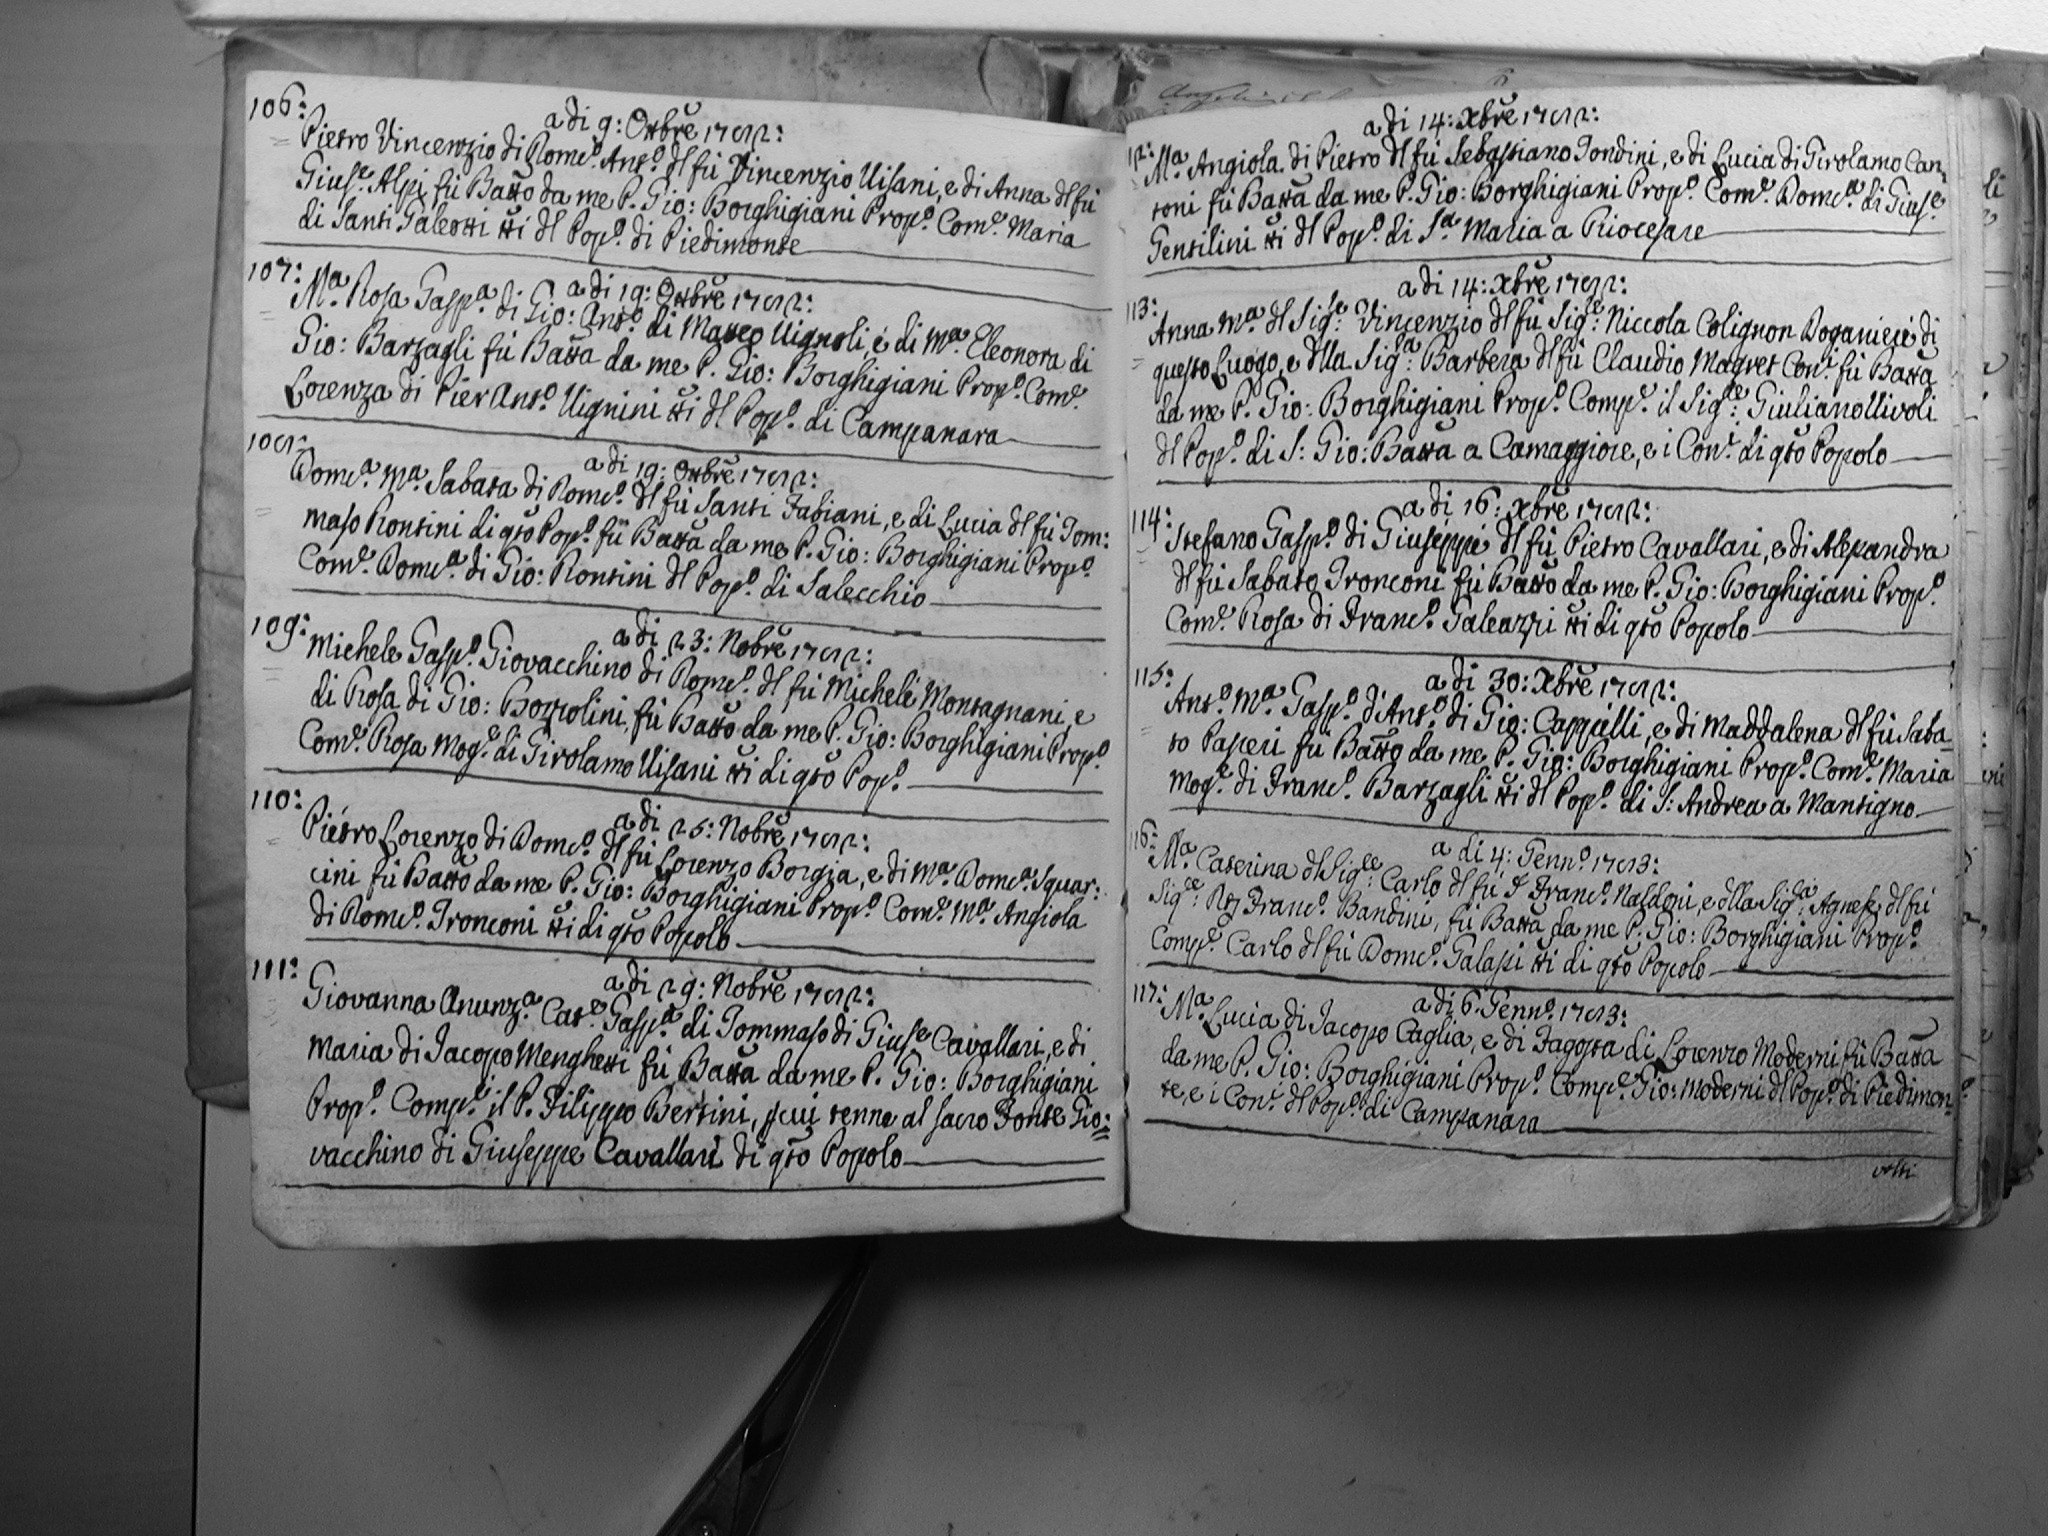 106: a di 9: Ottbre 1782:
Pietro Vincenzio di Domco. Anto. dl fù Vincenzio Visani, e di Anna dl fù
Giuse. Alpi fù Batto da me P. Gio: Borghigiani Propo. Come. Maria
di Santi Galeotti tti dl Popo. di Piedimonte
107: a di 19: Ottbre 1782:
Ma. Rosa Gaspa. di Gio: Anto. di Matteo Vignoli, e di Ma. Eleonora di
Gio: Barzagli fù Batta da me P. Gio: Borghigiani Propo. Come.
Lorenza di Pier Anto. Vignini tti dl Popo. di Campanara
108: a di 19: Ottbre 1782:
Domca. Ma. Sabata di Romo. dl fù Santi Fabiani, e di Lucia dl fù Tom:
maso Rontini di qto Popo. fù Batta da me P. Gio: Borghigiani Propo.
Come. Domca. di Gio: Rontini dl Popo. di Salecchio
109: a di 23: Nobre 1782:
Michele Gaspo. Giovacchino di Romo. dl fù Michele Montagnani, e
di Rosa di Gio: Bozzolini, fù Batto da me P. Gio: Borghigiani Propo.
Come. Rosa Moge. di Girolamo Visani tti di qto Popo.
110: a di 25: Nobre 1782:
Pietro Lorenzo di Domco. dl fù Lorenzo Borgia, e di Ma. Domca. Squar:
cini fù Batto da me P. Gio: Borghigiani Propo. Come. Ma. Angiola
di Domco. Tronconi tti di qto Popolo
111: a di 29: Nobre 1782:
Giovanna Anunza. Cate. Gaspa. di Tommaso di Giuse. Cavallari, e di
Maria di Jacopo Menghetti fù Batta da me P. Gio: Borghigiani
Propo. Compe. il P. Filippo Bertini, p cui tenne al sacro Fonte Gio:
vacchino di Giuseppe Cavallari di qto Popolo
a di 14: Xbre 1782:
12: Ma. Angiola di Pietro dl fù Sebastiano Tondini, e di Lucia di Girolamo Can:
toni fù Batta da me P. Gio: Borghigiani Propo. Come. Domca. di Giuse.
Gentilini tti dl Popo. di Sa. Maria a Riocesare
a di 14: Xbre 1782:
113: Anna Ma. dl Sigle. Vincenzio dl fù Sigle. Niccola Colignon Doganiere di
questo Luogo, e dlla Sigla. Barbera dl fù Claudio Magret Coni. fù Batta
da me P. Gio: Borghigiani Propo. Compe. il Sigle: Giuliano Nivoli
dl Popo. di S: Gio: Batta a Camaggiore, e i Coni. di qto Popolo
a di 16: Xbre 1782:
114: Stefano Gaspo. di Giuseppe dl fù Pietro Cavallari, e di Alexandra
dl fù Sabato Tronconi fù Batto da me P. Gio: Borghigiani Propo.
Come. Rosa di Franco. Galeazzi tti di qto Popolo
a di 30: Xbre 1782:
115: Anto. Ma. Gaspo. d'Anto. di Gio: Cappelli, e di Maddalena dl fù Saba=
to Pasceri fù Batto da me P. Gio: Borghigiani Propo. Come. Maria
Moge. di Franco. Barzagli tti dl Popo. di S: Andrea a Mantigno
a di 4: Genno. 1783:
116: Ma. Caterina dl Sigle. Carlo dl fù S Franco. Naldoni, e dlla Sigla: Agnese dl fù
Sigle: Franco. Bandini, fù Batta da me P. Gio: Borghigiani Propo.
Compe. Carlo dl fù Domco. Galassi tti di qto Popolo
a di 6. Genno. 1783:
117: Ma. Lucia di Jacopo Caglia, e di Fagosta di Lorenzo Moderni fù Batta
da me P. Gio: Borghigiani Propo. Compe. Gio: Moderni dl Popo. di Piedimon:
te, e i Coni. dl Popo. di Campanara
volti